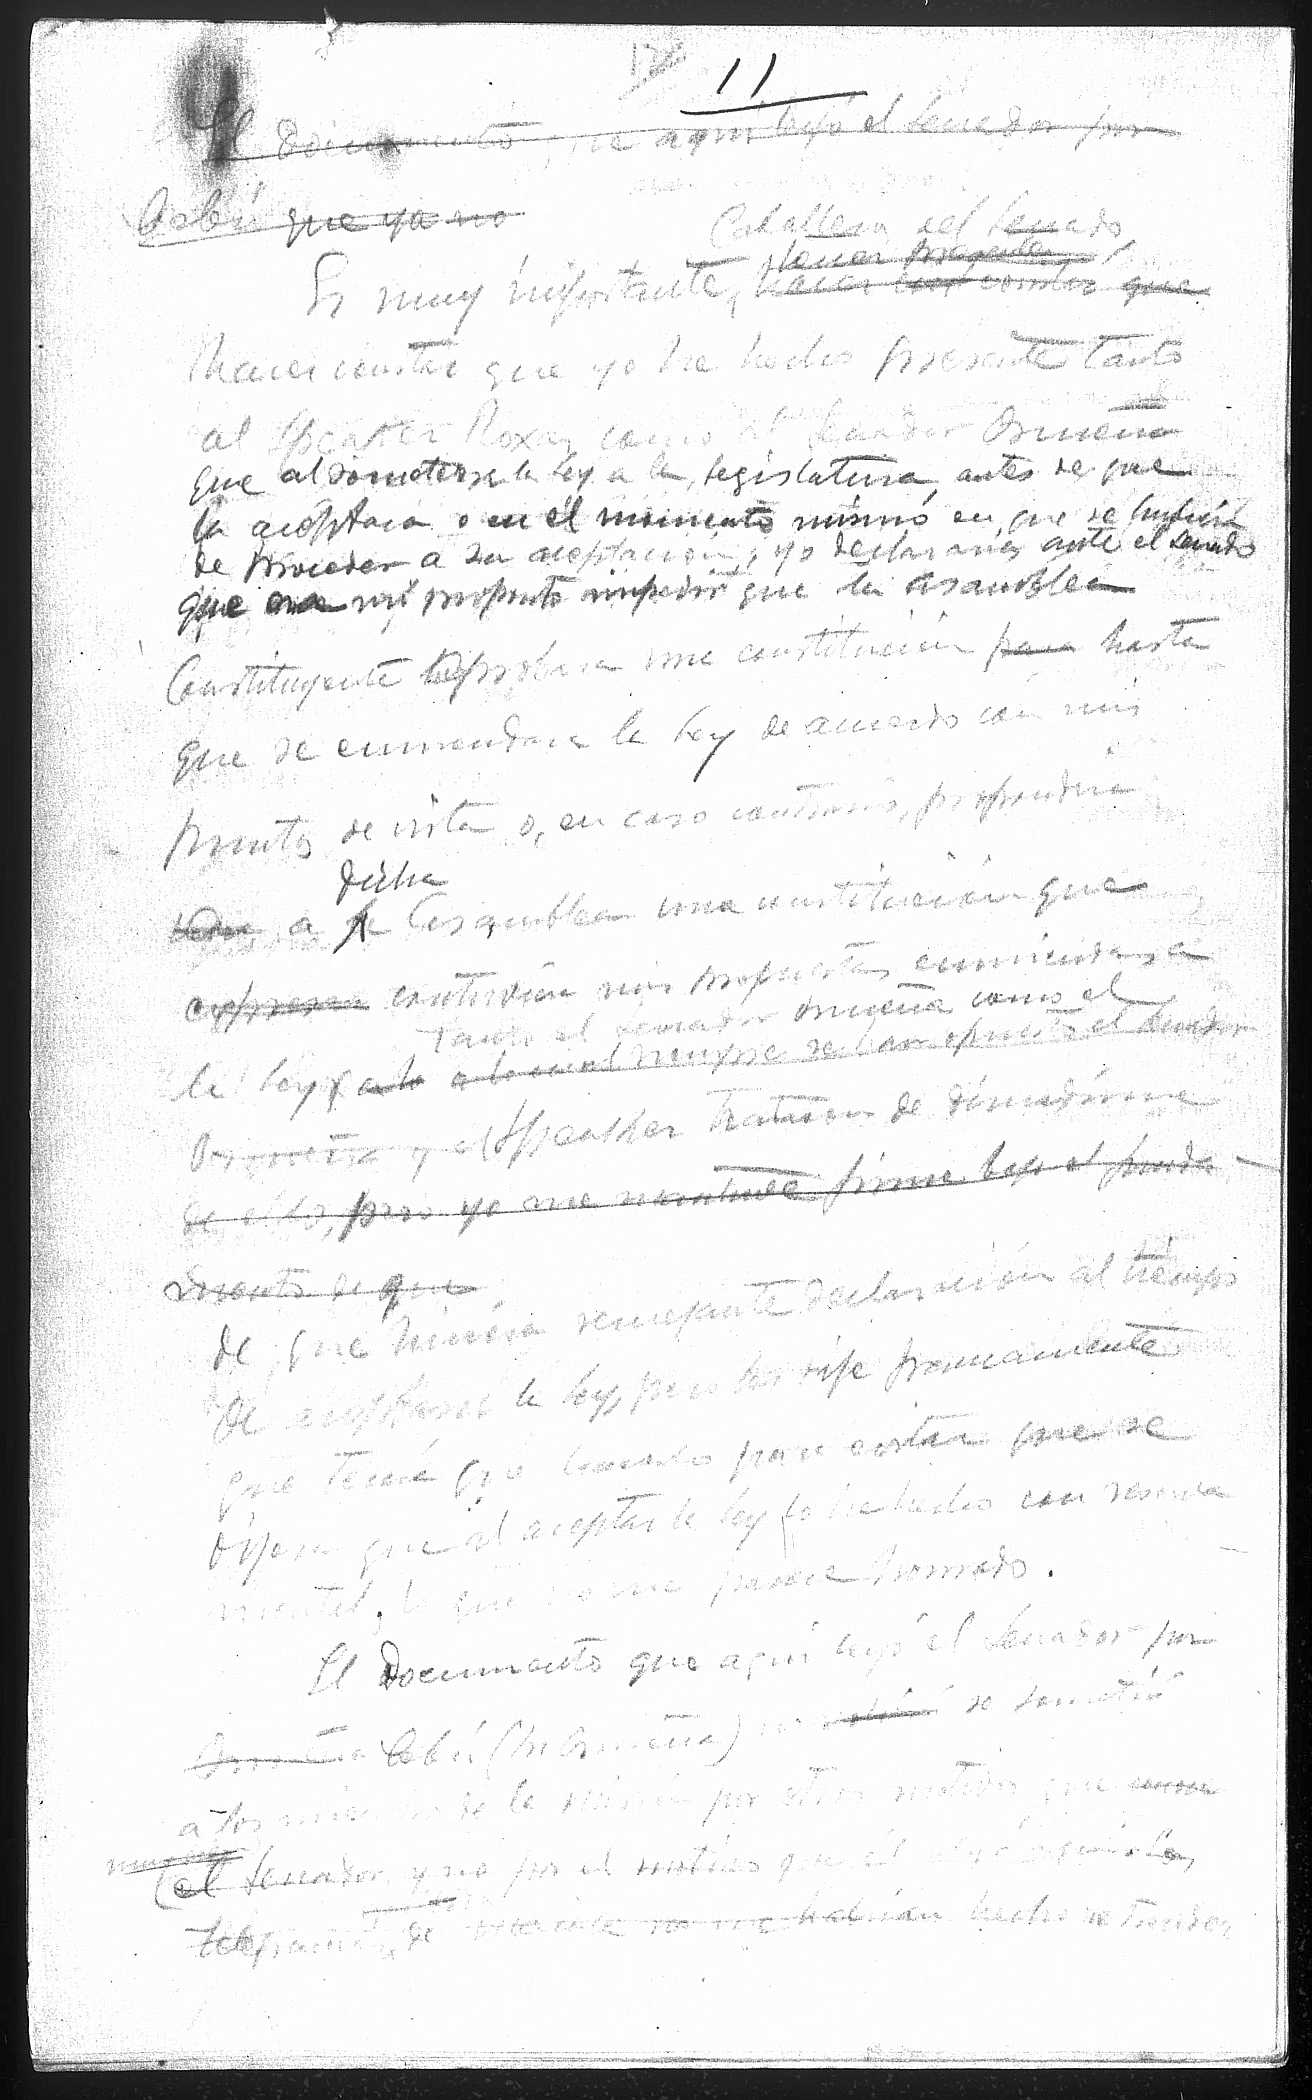 11
El documento que aquí leyó el Senador por
Cebú que ya no
Caballeros del Senado
hacer presente
Es muy importante, hacer constar que
hacer constar que yo he hecho presente tanto
al Speaker Roxas como al Senador Osmeña
que al someterse la ley a la legislatura, antes de que
la aceptara o en el momento mismo en que se hubiera
de proceder a su aceptación, yo declararía ante el Senado
que era mi propósito impedir que la Asamblea
Constituyente aprobara una constitución para hasta
que se enmendara la ley de acuerdo con mis
puntos de vista o, en caso contrario, propondría
dicha
a la Asamblea una constitución que
contuvieran mis propuestas enmiendas a
Tanto el Senador Osmeña como el
la ley, a lo cual siempre se han opuesto el Senador
Osmeña y el Speaker trataron de disuadirme
de ello, pero yo me mantuve firme bajo el funda-
mento de que
de que hiciera semejante declaración al tiempo
de aceptarse la ley, pero les dije francamente
que tenía que hacerlo para evitar que se
dijera que al aceptar la ley lo he hecho con reserva
mental, lo que no me parece honrado.
El documento que aquí leyó el Senador por
Osmeña Cebú (Sr. Osmeña) no se sometió
a los miembros de la misión por otros motivos que
el Senador y no por el motivo que él
telegramas de no me habían hecho